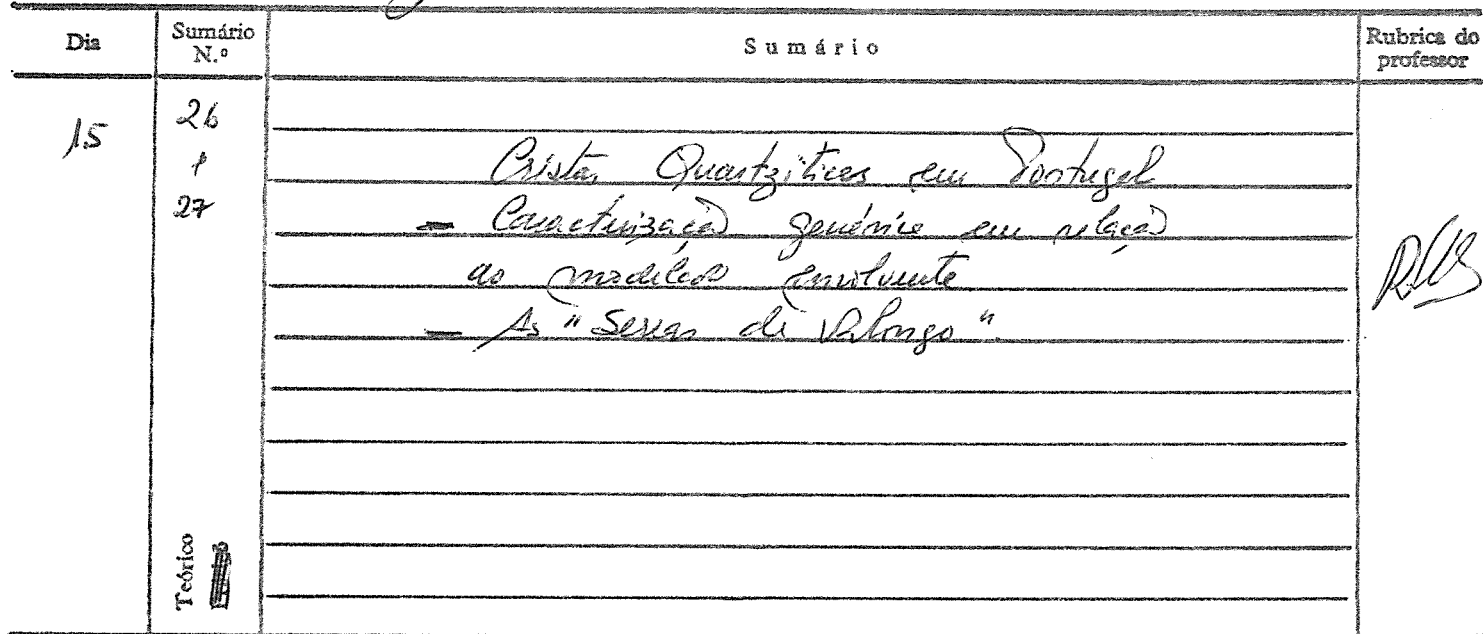 Dia Sumário N.º Sumário Rubrica do professor
15
26
e
27
Cristas Quartzíticas em Portugal
— Caracterização genérica em relação
ao modelado envolvente
— As "Serras de Valongo".
Teórico